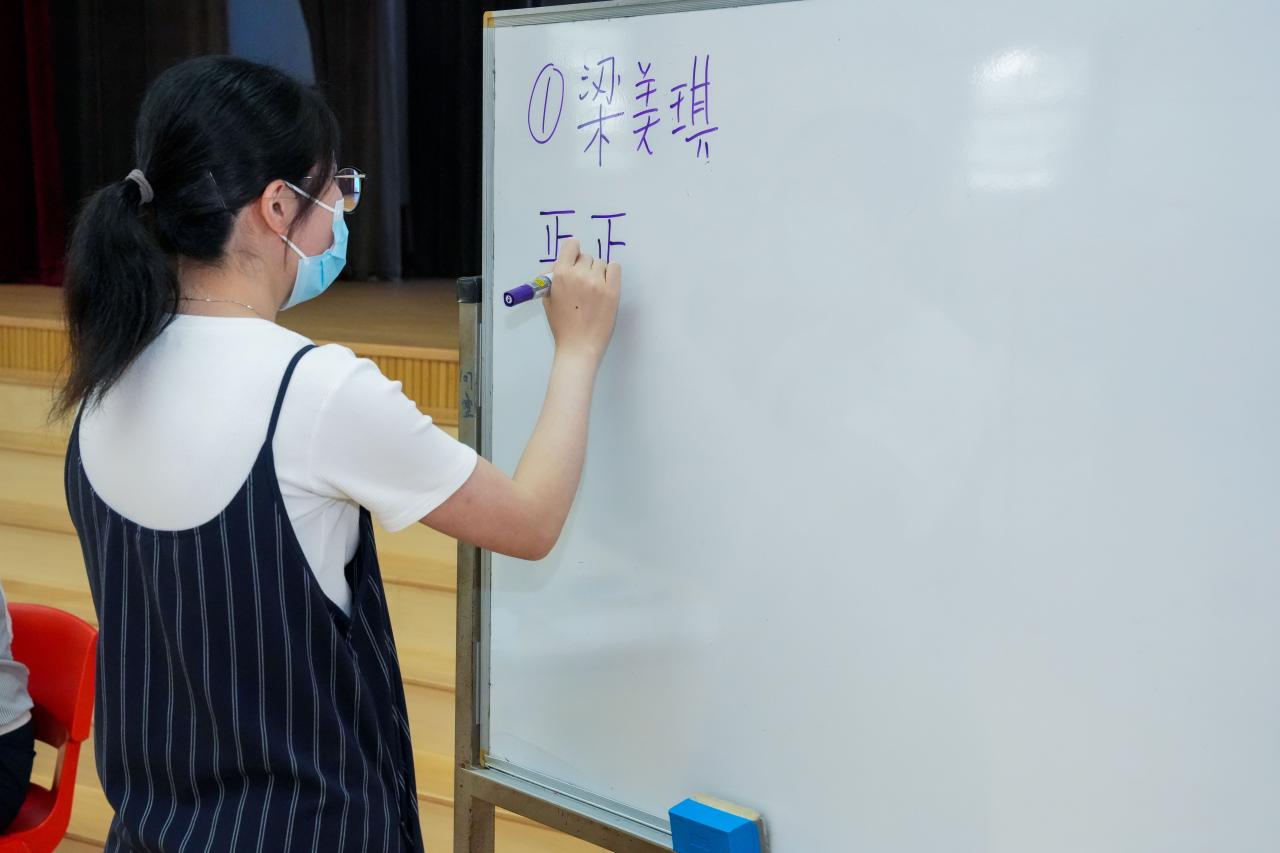 ① 梁美琪
正 正